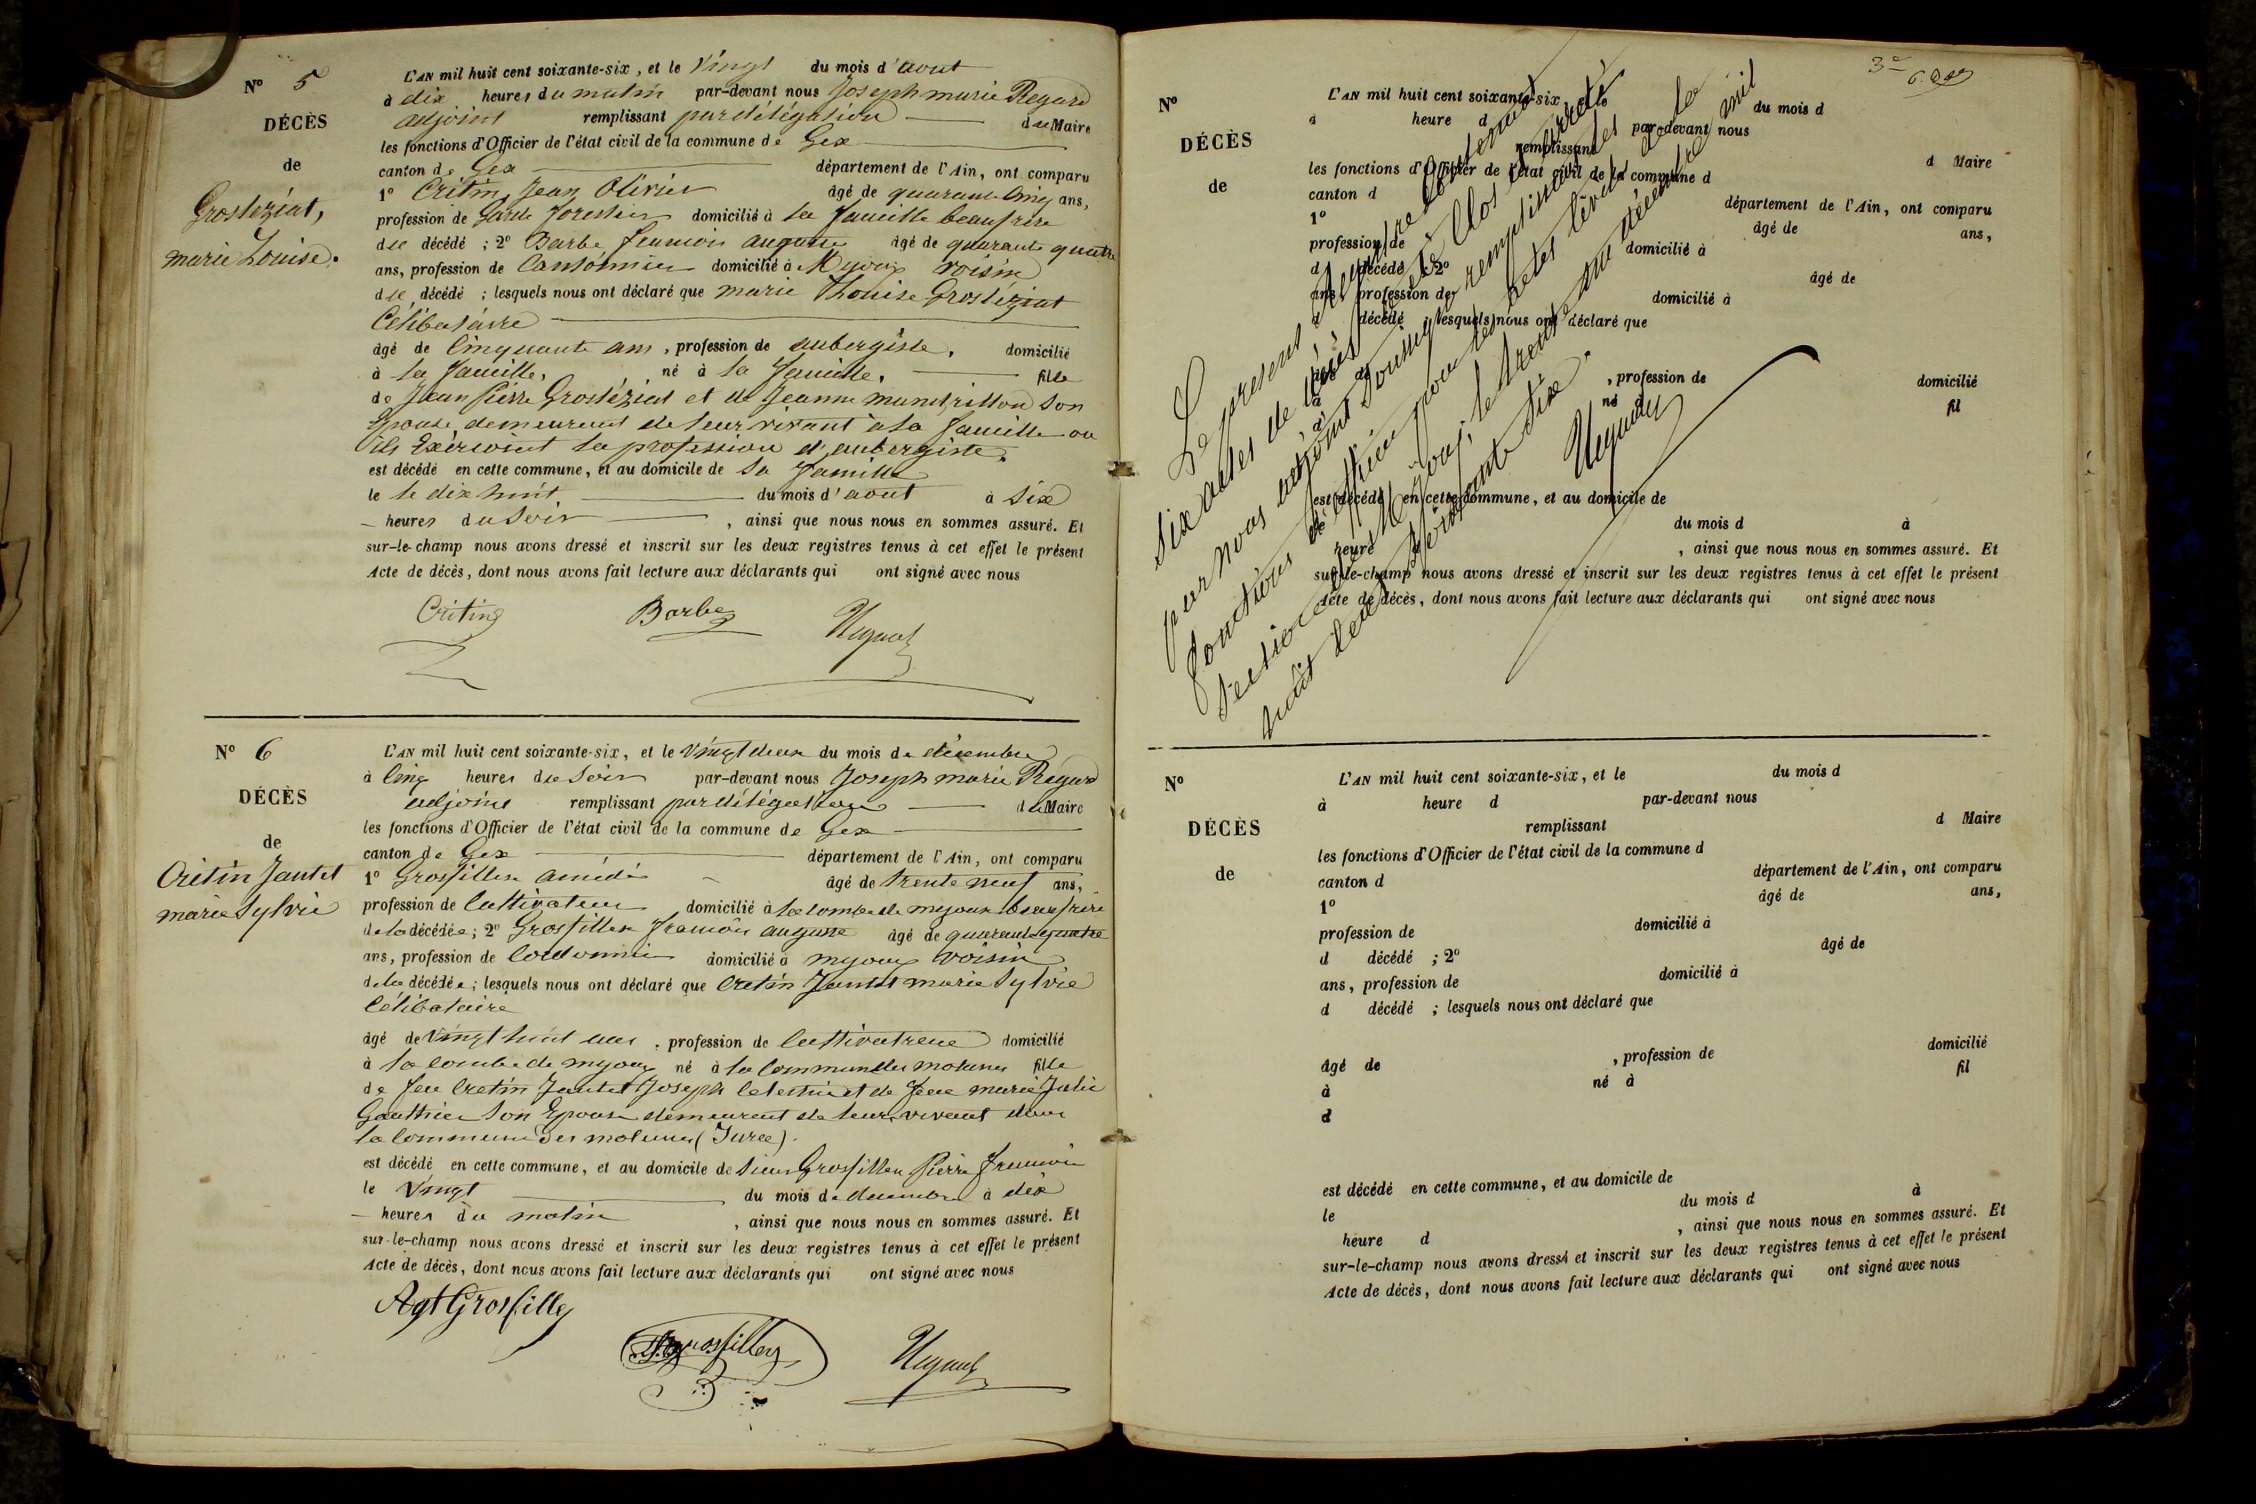 N° 5
DÉCÈS
de
Grostéziat,
marie Louise.
L'AN mil huit cent soixante-six, et le Vingt du mois d'aout
à dix heures du matin par-devant nous Joseph marie Regard
adjoint remplissant par délégation du Maire
les fonctions d'Officier de l'état civil de la commune de Gex
canton de Gex département de l'Ain, ont comparu
1° Critin Jean Olivier âgé de quarante cinq ans,
profession de Garde forestier domicilié à la faucille beaufrère
de décédé ; 2° Barbe francois auguste âgé de quarante quatre
ans, profession de Cantonnier domicilié à Mijoux voisin
de décédé ; lesquels nous ont déclaré que marie Louise Grostéziat
Célibataire
âgé de Cinquante ans, profession de aubergiste, domicilié
à la faucille, né à la faucille, fille
de Jean Pierre Grostéziat et de Jeanne mandrillon son
Epouse, demeurant de leur vivant à la faucille ou
ils Exercoint la profession d'aubergiste.
est décédé en cette commune, et au domicile de la faucille
le le dix huit du mois d'aout à six
heures du Soir, ainsi que nous nous en sommes assuré. Et
sur-le-champ nous avons dressé et inscrit sur les deux registres tenus à cet effet le présent
Acte de décès, dont nous avons fait lecture aux déclarants qui ont signé avec nous
Critin Barbe Regard
N° 6
DÉCÈS
de
Crétin Jantet
marie Sylvie
L'AN mil huit cent soixante-six, et le vingt deux du mois de décembre
à Cinq heures du Soir par-devant nous Joseph marie Regard
adjoint remplissant par délégation du Maire
les fonctions d'Officier de l'état civil de la commune de Gex
canton de Gex département de l'Ain, ont comparu
1° Grosfilley amédé âgé de trente neuf ans,
profession de Cultivateur domicilié à la combe de mijoux beaufrère
de la décédée ; 2° Grosfilley francois auguste âgé de quarante quatre
ans, profession de Cordonnier domicilié à mijoux voisin
de la décédée ; lesquels nous ont déclaré que Cretin Jantet marie Sylvie
Célibataire
âgé de vingt huit ans, profession de Cultivatrice domicilié
à la combe de mijoux né à la Commune des molunes fille
de feu Cretin Jantet Joseph Celestin et de feue marie Julie
Gauthier son Epouse demeurant de leur vivant dans
la Commune des molunes (Jura).
est décédé en cette commune, et au domicile de Sieur Grosfilley Pierre francois
le Vingt du mois de decembre à dix
heures du matin, ainsi que nous nous en sommes assuré. Et
sur-le-champ nous avons dressé et inscrit sur les deux registres tenus à cet effet le présent
Acte de décès, dont nous avons fait lecture aux déclarants qui ont signé avec nous
Agt Grosfilley
Grosfilley Regard
3e
N°
DÉCÈS
de
L'AN mil huit cent soixante-six, et le du mois d
à heure d par-devant nous
remplissant d Maire
les fonctions d'Officier de l'état civil de la commune d
canton d département de l'Ain, ont comparu
1° âgé de ans,
profession de domicilié à
d décédé ; 2° âgé de
ans, profession de domicilié à
d décédé ; lesquels nous ont déclaré que
âgé de , profession de domicilié
à né à fil
d
est décédé en cette commune, et au domicile de
du mois d à
heure , ainsi que nous nous en sommes assuré. Et
sur-le-champ nous avons dressé et inscrit sur les deux registres tenus à cet effet le présent
Acte de décès, dont nous avons fait lecture aux déclarants qui ont signé avec nous
Le present Registre Contenant
six actes de décès a été Clos et arrêté
par nous adjoint Soussigné remplissant les
fonctions d'officier pour les actes civils de la
Section de Mijoux, le trente un décembre mil
huit cent Soixante Six.
Regard
N°
DÉCÈS
de
L'AN mil huit cent soixante-six, et le du mois d
à heure d par-devant nous
remplissant d Maire
les fonctions d'Officier de l'état civil de la commune d
canton d département de l'Ain, ont comparu
1° âgé de ans,
profession de domicilié à
d décédé ; 2° âgé de
ans, profession de domicilié à
d décédé ; lesquels nous ont déclaré que
âgé de , profession de domicilié
à né à fil
d
est décédé en cette commune, et au domicile de
le du mois d à
heure d , ainsi que nous nous en sommes assuré. Et
sur-le-champ nous avons dressé et inscrit sur les deux registres tenus à cet effet le présent
Acte de décès, dont nous avons fait lecture aux déclarants qui ont signé avec nous